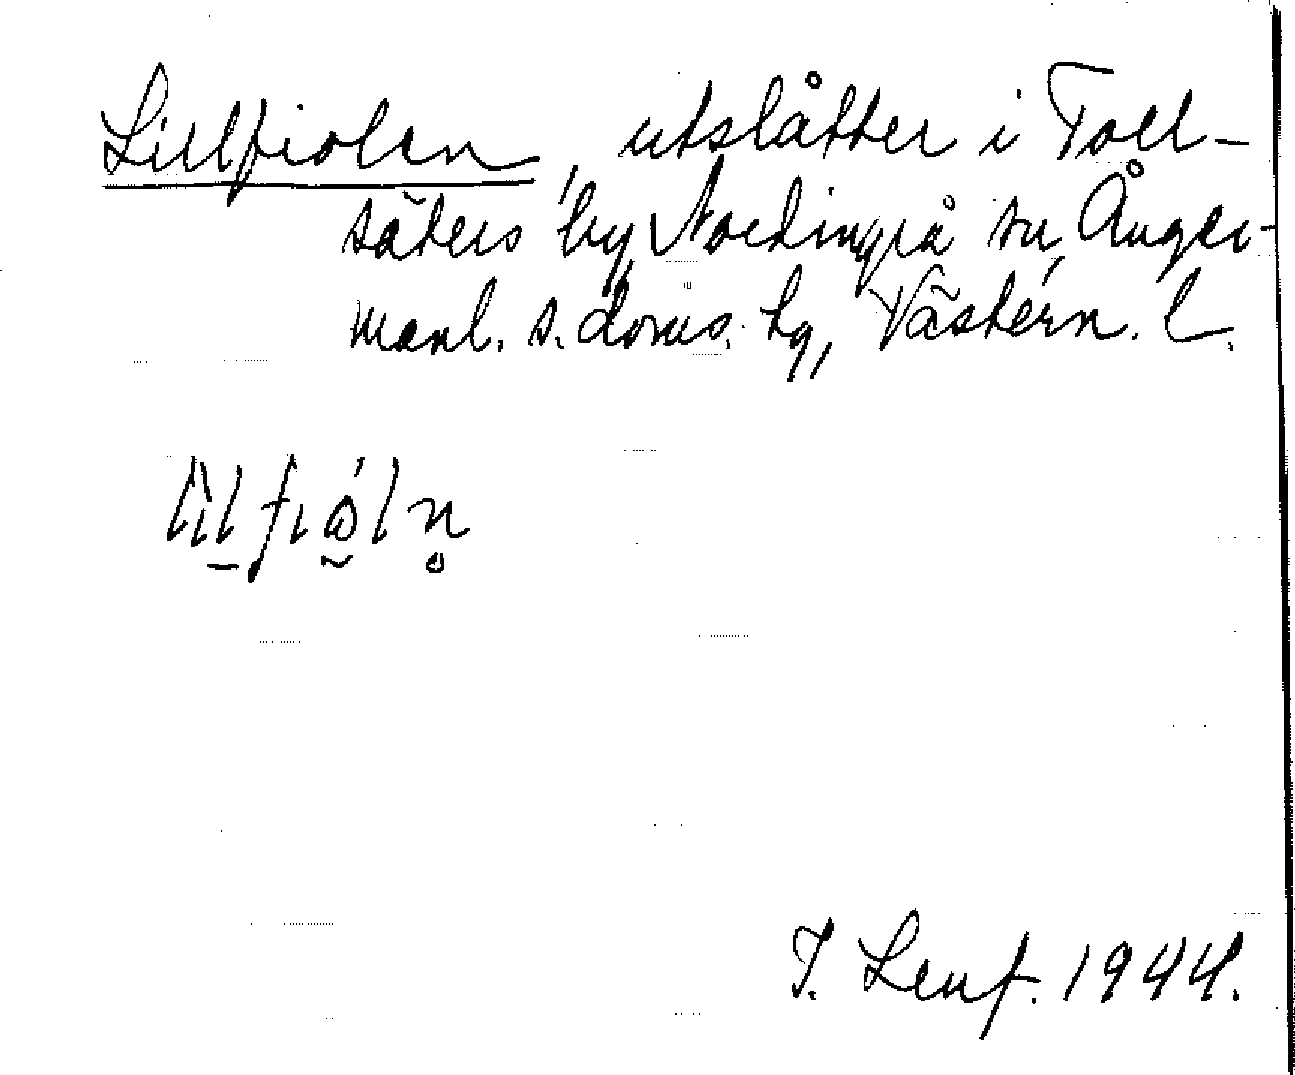 Lillfiolen, utslåtter i Toll-
säters by, Nordingrå sn, Ånger-
manl. s. doms. hg, Västern. l.
lìlfióln̥
I. Lenf. 1944.